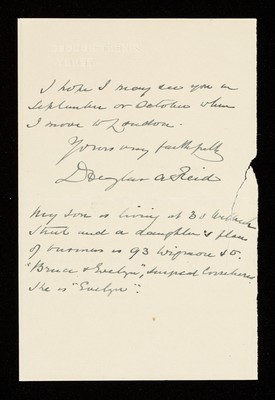 I hope I may see you in
September or October when
I move to London.
Yours very faithfully
Douglas A Reid
My son is living at 33 Welbeck
Street and a daughter's place
of business is 93 Wigmore St.
"Bruce & Evelyn", surgical Corsetieres.
She is "Evelyn".